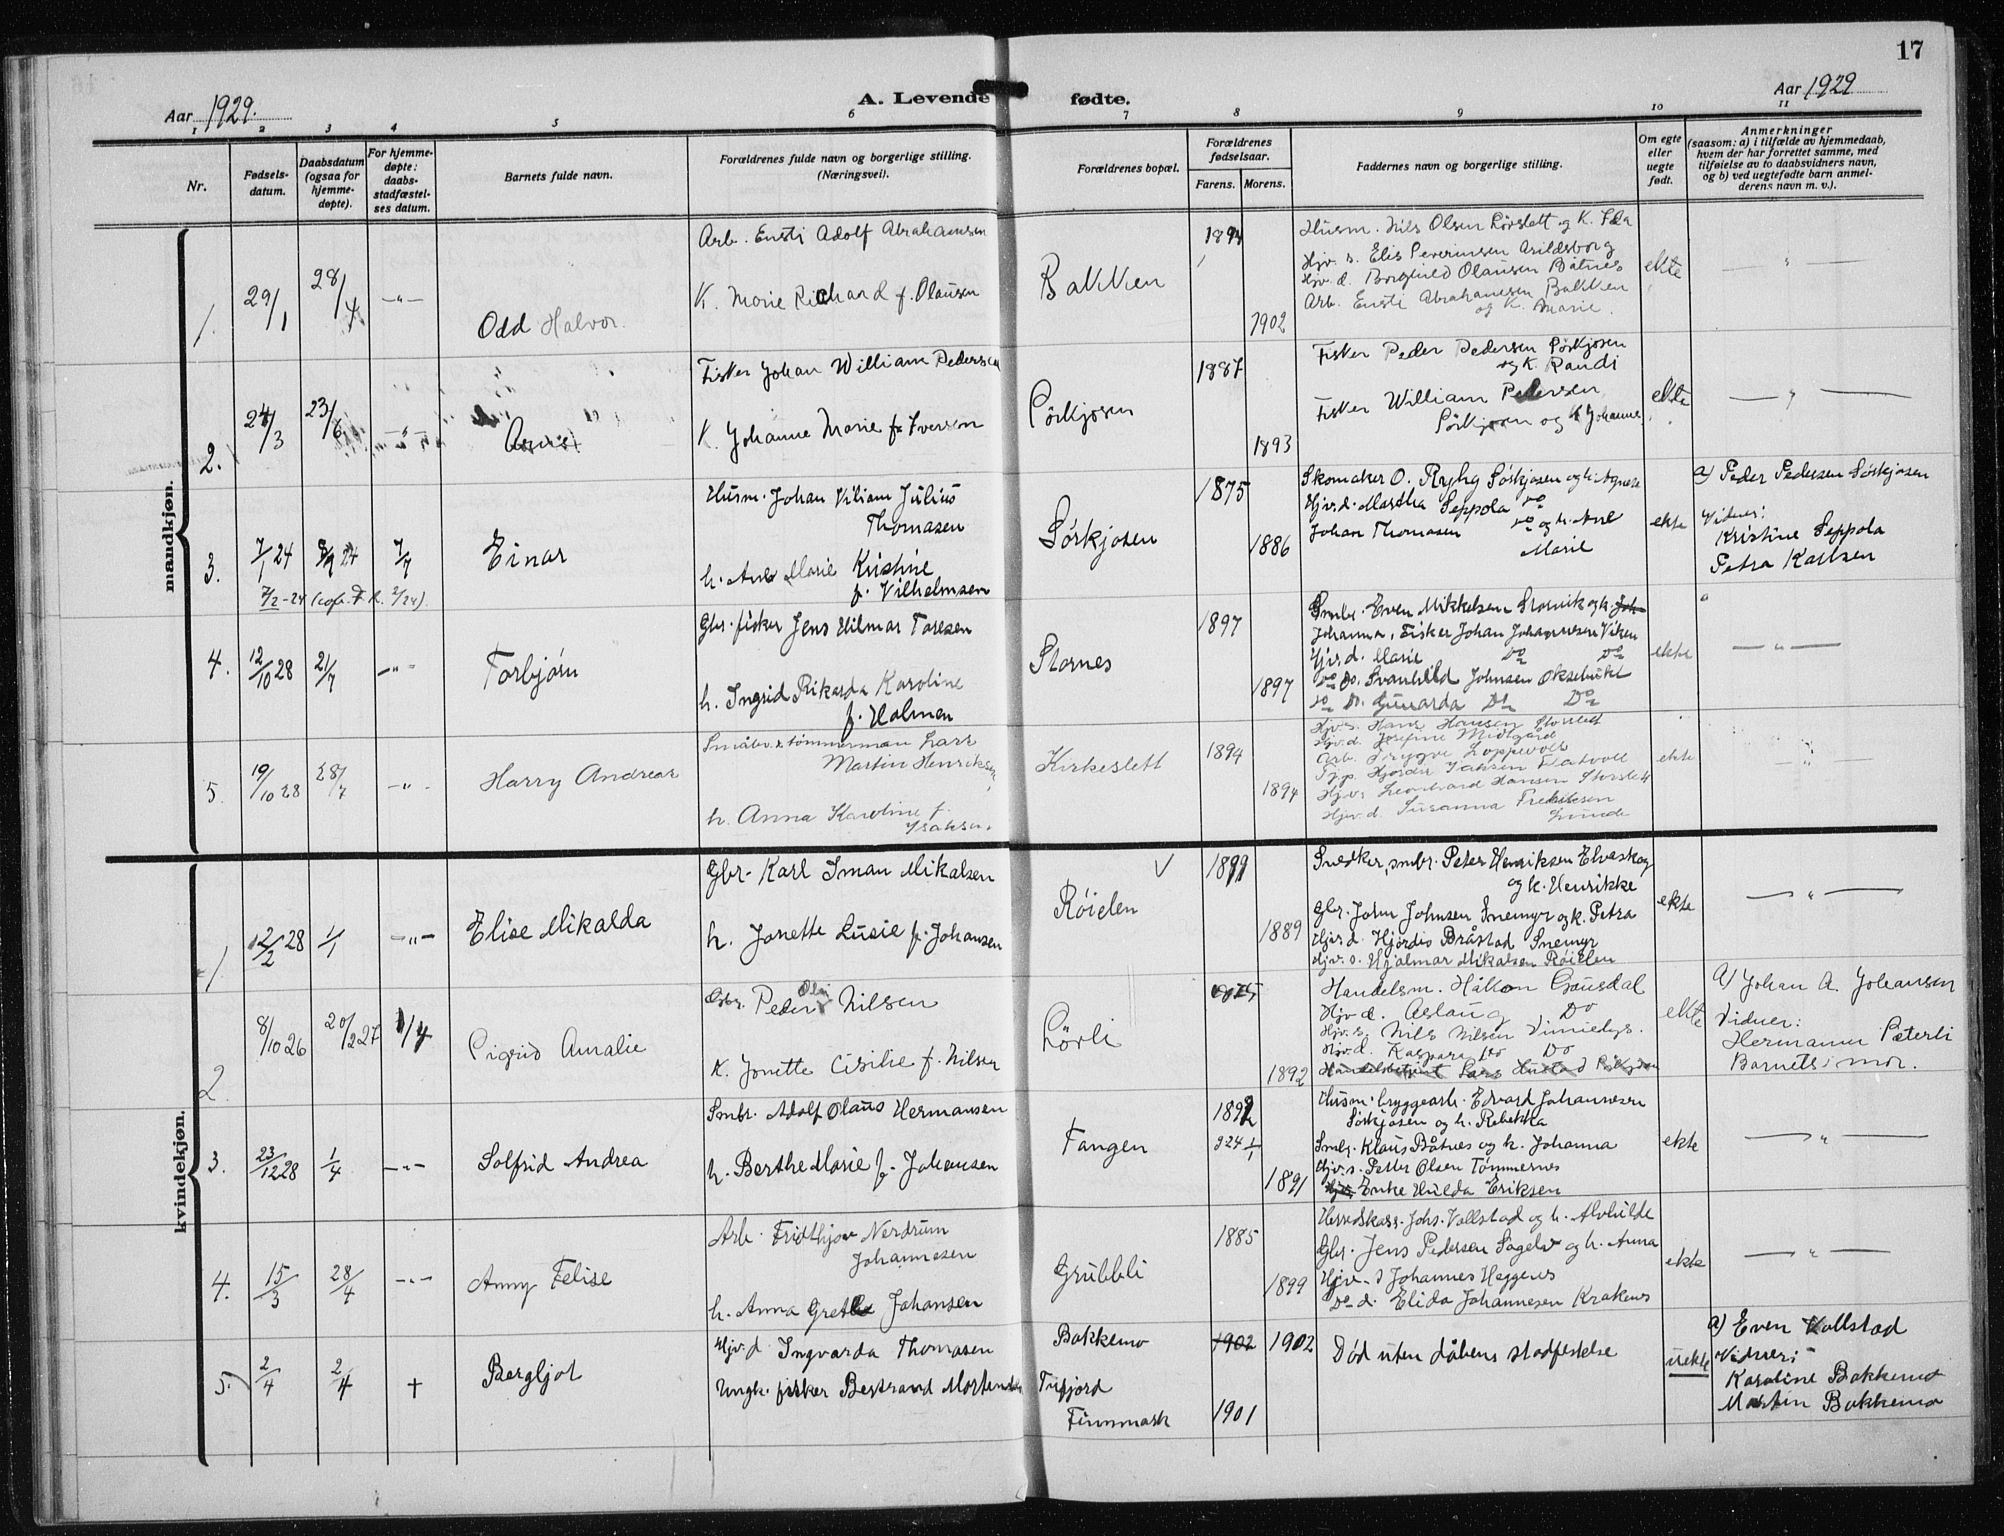 17
Aar 1929.
A. Levende fødte.
Aar 1929
1 2 3 4 5 6 7 8 9 10 11
Nr.
Fødsels-
datum.
Daabsdatum
(ogsaa for
hjemme-
døpte).
For hjemme-
døpte:
daabs-
stadfæstel-
ses datum.
Barnets fulde navn.
Forældrenes fulde navn og borgerlige stilling.
(Næringsvei).
Forældrenes bopæl.
Forældrenes
fødselsaar.
Farens. Morens.
Faddernes navn og borgerlige stilling.
Om egte
eller
uegte
født.
Anmerkninger
(saasom: a) i tilfælde av hjemmedaab,
hvem der har forrettet samme, med
tilføielse av to daabsvidners navn,
og b) ved uegtefødte barn anmel-
derens navn m. v.).
mandkjøn.
1. 29/1 28/4 -"-
Odd Halvor
Arb. Ensti Adolf Abrahamsen
K. Marie Richard f. Olausen
Bakken
1894
1902
Husm. Nils Olsen Rørslett og K. Ida
Hjv. s. Elis Severinsen Arildsborg
Hjv. d. Borghild Olausen Båtnes
Arb. Ensti Abrahamsen Bakken
og K. Marie.
ekte
— " —
2. 24/3 23/6 -"-
Fisker Johan William Pedersen
K. Johanne Marie f. Iversen
Sørkjosen
1887
1893
Fisker Peder Pedersen Sørkjosen
og K. Randi
Fisker William Pedersen
Sørkjosen og K Johanne
ekte
— " —
3. 7/1 24 24 7/7
7/2-24
Einar
Husm. Johan Viliam Julius
Thomasen
h. Ane Marie Kristine
f. Vilhelmsen
Sørkjosen
1875
1886
Skomaker O. Ryhg Sørkjosen og h. Agnese
Hjv. d. Martha Seppola do
Johan Thomasen do og h. Ane
Marie
ekte
a) Peder Pedersen Sørkjosen
Vidner:
Kristine Seppola
Petra Karlsen
4. 12/10 28 21/7 -"-
Torbjørn
Gbr. fisker Jens Hilmar Toresen
h. Ingrid Rikarda Karoline
f. Holmen
Stornes
1897
1897
Smbr. Even Mikkelsen Storvik og k. Joh
Johanna, Fisker Johan Johannesen Viken
Hjv. d. Marie Do Do
Do Do. Svanhild Johnsen Oksebukt
Do D. Gunarda Do Do
ekte
— " —
5. 19/10 28 28/7 -"-
Harry Andreas
Småbr. & tømmerman Lars
Martin Henriksen
h. Anna Karoline f.
Isaksen
Kirkeslett
1894
1894
Hjv. s. Hans Hansen Storslett
Hjv. d. Josefine Midtgård
Arb. Trygve Loppevoll
Hjv. s. Leonhard Hansen Storslett
Hjv. d. Susanna Fredriksen
Lunde
ekte
— " —
kvindekjøn.
1. 12/2 28 1/1 -"-
Elise Mikalda
Gbr. Karl Iman Mikalsen
h. Janette Lusie f. Johansen
Røielen
V
1899
1889
Snedker, smbr. Peter Henriksen Elveskog
og k. Henrikke
Gbr. John Johnsen Snemyr og k. Petra
Hjv. d. Hjørdis Bråstad Snemyr
Hjv. s. Hjalmar Mikalsen Røielen
ekte
— " —
2. 8/10 26 20/2 27 1/4
Sigrid Amalie
Gbr. Peder Nilsen
K. Jonette Cisilie f. Nilsen
Sørli
1892
Handelsm. Håkon Gausdal
Hjv d. Aslaug Do
Hjv. s. Nils Nilsen
Hjv. d. Kaspara Do Do
ekte
a) Johan A. Johansen
Vidner:
Hermann Peterli
Barnets mor.
3. 23/12 28 1/4 -"-
Solfrid Andrea
Smbr. Adolf Olaus Hermansen
h. Berthe Marie f. Johansen
Fangen
1892
224 1/1
1891
Husm. bryggearb. Edvard Johannesen
Sørkjosen og h. Rebekka
Smbr. Klaus Båtnes og h. Johanna
Hjv. s. Petter Olsen Tømmernes
Enke Hulda Eriksen
ekte
— " —
4. 15/3 28/4 -"-
Anny Felise
Arb. Fridthjov Nordrum
Johannesen
h. Anna Grethe Johansen
Grubbli
1885
1899
Herredskass. Johs. Vollstad og h. Alvhilde
Gbr. Jens Pedersen Sagelv og h. Anna
Hjv. s Johannes Heggenes
Do d. Elida Johannesen Kraknes
ekte
— " —
5. 2/4 2/4 †
Bergljot
Hjv. d. Ingvarda Thomasen
Ungk. fisker Bertrand Mortensen
Bakkemo
Tufjord
Finnmark
1902 1902
1901
Død uten dåbens stadfestelse
uekte
a) Even Vollstad
Vidner:
Karoline Bakkemo
Martin Bakkemo